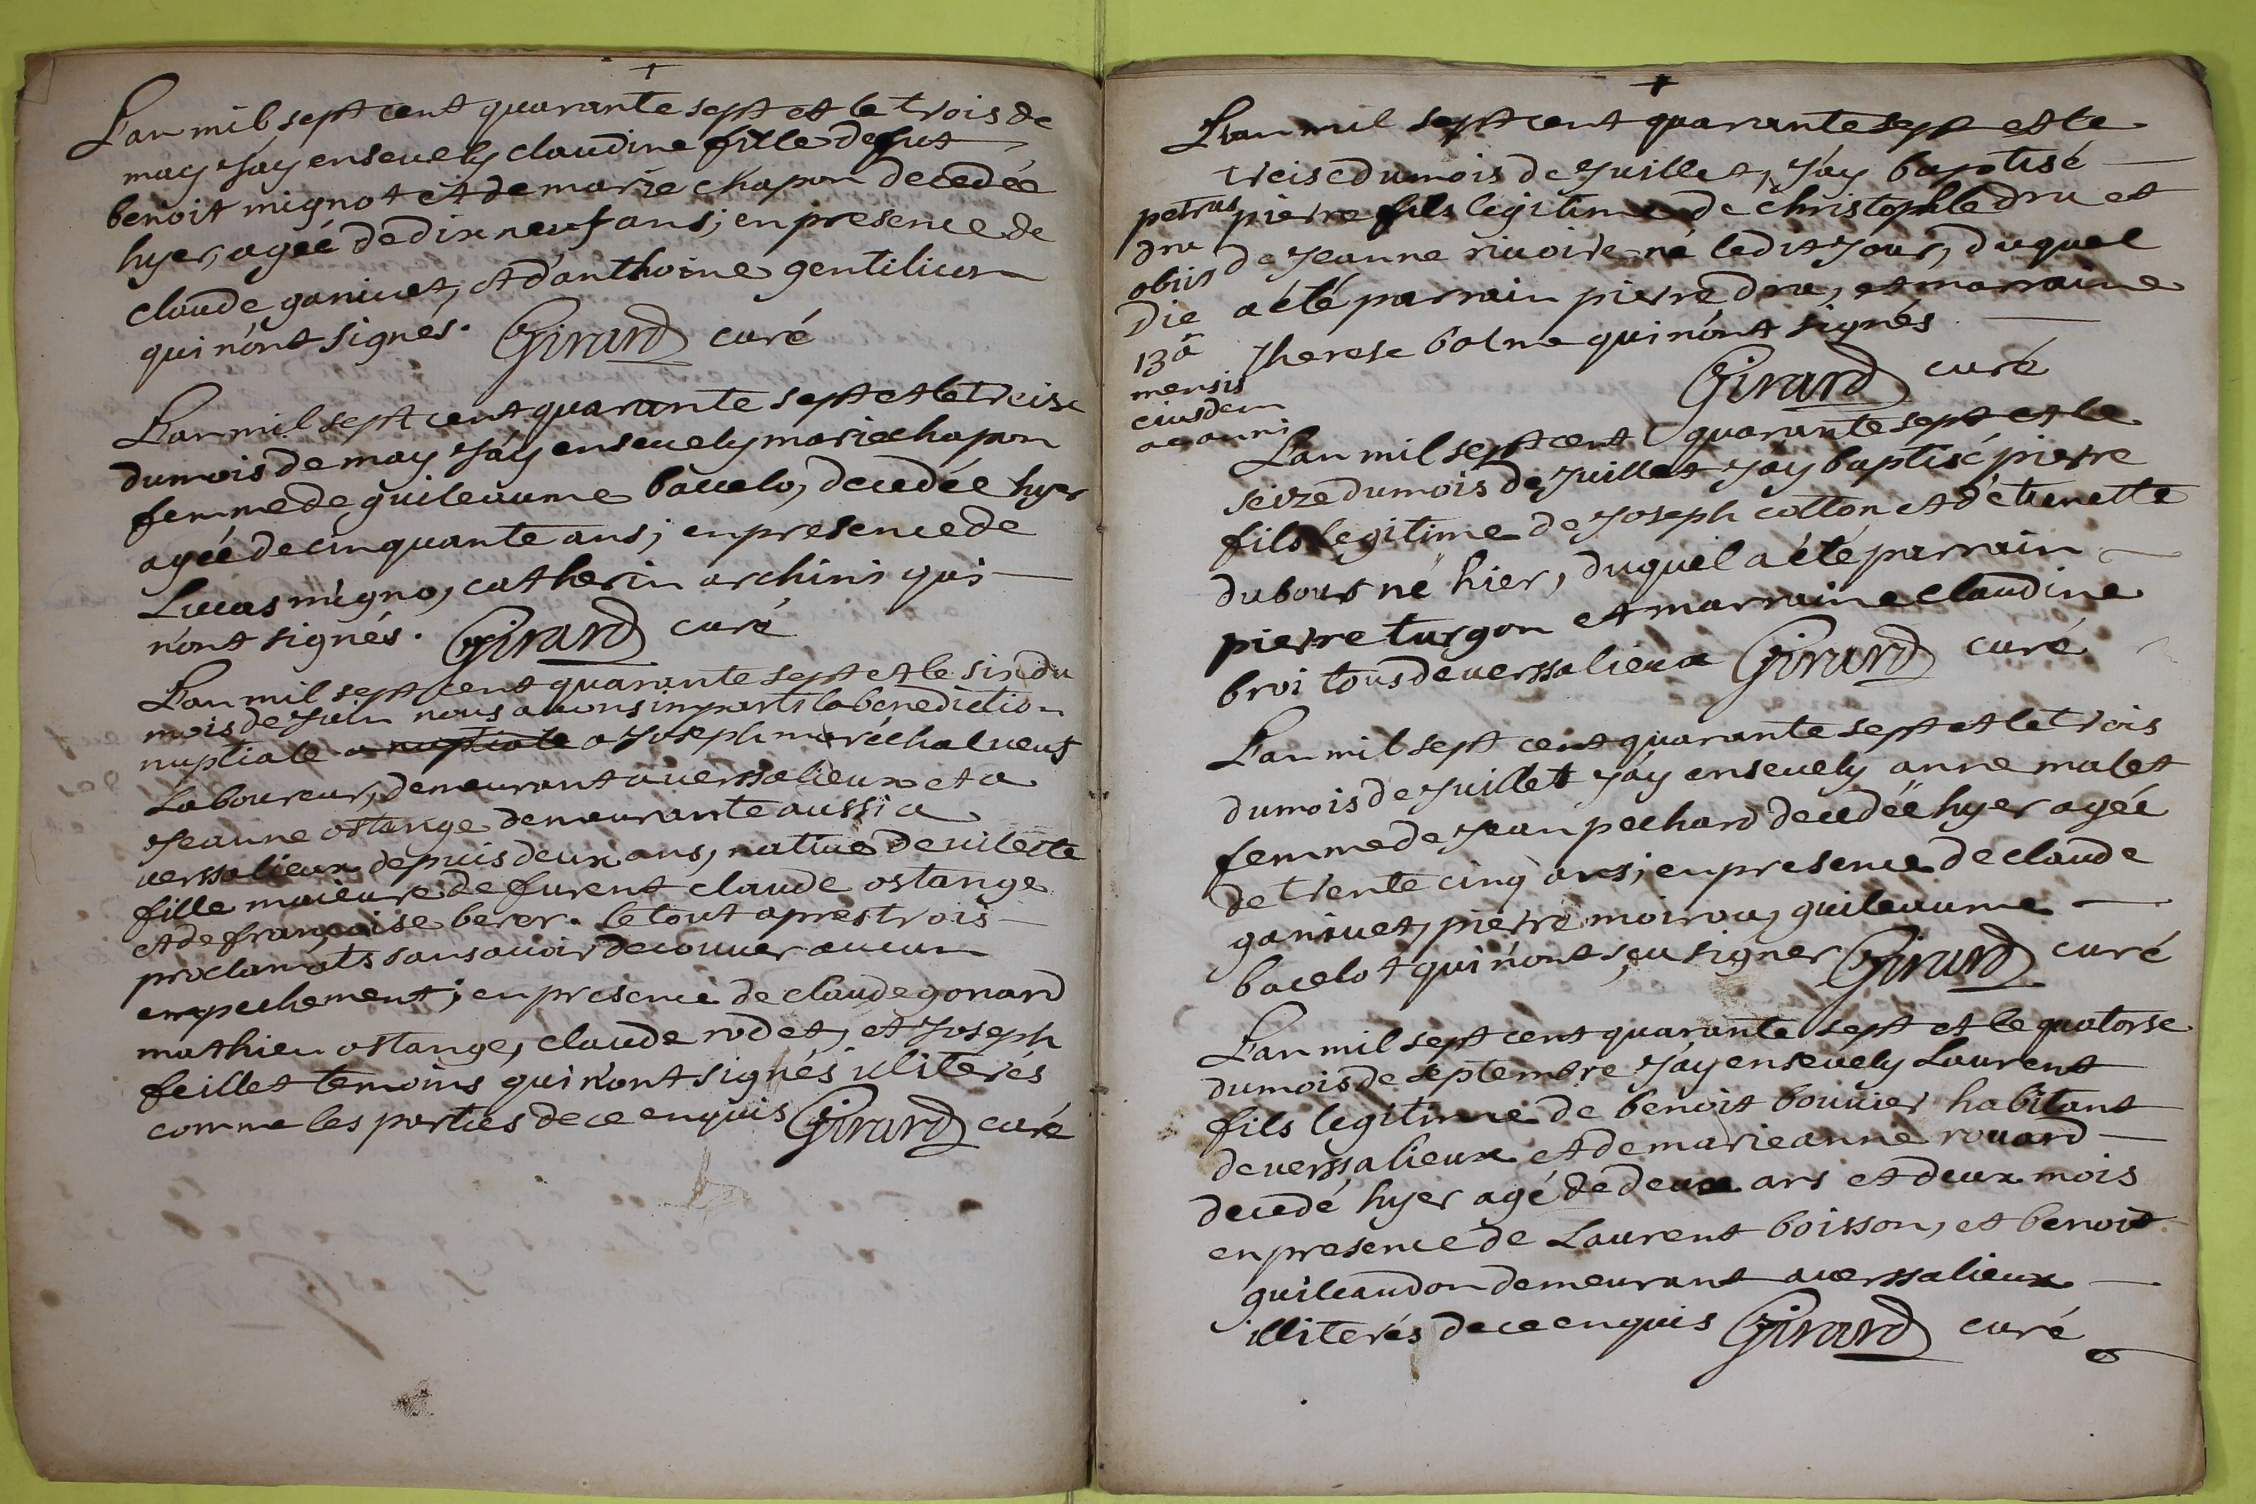 L'an mil sept cent quarante sept et le trois de
may J'ay ensevely claudine fille de fut
benoit mignot et de marie chapon decedée
hyer, agée de dix neuf ans; en presence de
claude ganivet, et d'anthoine gentilicon
qui n'ont signés. Girard curé
L'an mil sept cent quarante sept et le treise
du mois de may J'ay ensevely marie chapon
femme de guileaume bacelo, decedée hyer
agée de cinquante ans; en presence de
Lucas migno, catherin archinis qui
n'ont signés. Girard curé
L'an mil sept cent quarante sept et le six du
mois de Juin nous avons imparti la benediction
nuptiale a nuptiale a Joseph maréchal veuf
Laboureur, demeurant a verssalieux et a
Jeanne ostange demeurante aussi a
verssalieux depuis deux ans, native de vilette
fille maieure de furent claude ostange
et de françoise berer. le tout apres trois
proclamats sans avoir decouver aucun
empechement; en presence de claude gonard
mathieu ostange, claude rodet, et Joseph
feillet temoins qui n'ont signés iliterés
comme les parties de ce enquis Girard curé
L'an mil sept cent quarante sept et le
treise du mois de Juillet, J'ay baptisé
pierre fils legitime de christophle dru et
de Jeanne rivoire né ledit Jour, duquel
a été parrain pierre dru, et marraine
therese balne qui n'ont signés
Girard curé
petrus
dru
obiit
die
13a
mensis
eiusdem
ac anni
L'an mil sept cent quarante sept et le
seize du mois de Juillet J'ay baptisé pierre
fils legitime de Joseph cotton et d'etienette
dubour né hier, duquel a été parrain
pierre turgon et marraine claudine
broi tous de verssalieux Girard curé
L'an mil sept cent quarante sept et le trois
du mois de Juillet J'ay ensevely anne malet
femme de Jean pechard decedée hyer agée
de trente cinq ans; en presence de claude
ganivet, pierre moirou, guileaume
bacelot qui n'ont sçu signer Girard curé
L'an mil sept cent quarante sept et le quatorse
du mois de septembre J'ay ensevely Laurent
fils legitime de benoit bouvier habitant
de verssalieux et de marieanne rouard
decedé hyer agé de deux ans et deux mois
en presence de Laurent boisson, et benoit
guileaudon demeurant a verssalieux
illiterés de ce enquis Girard curé